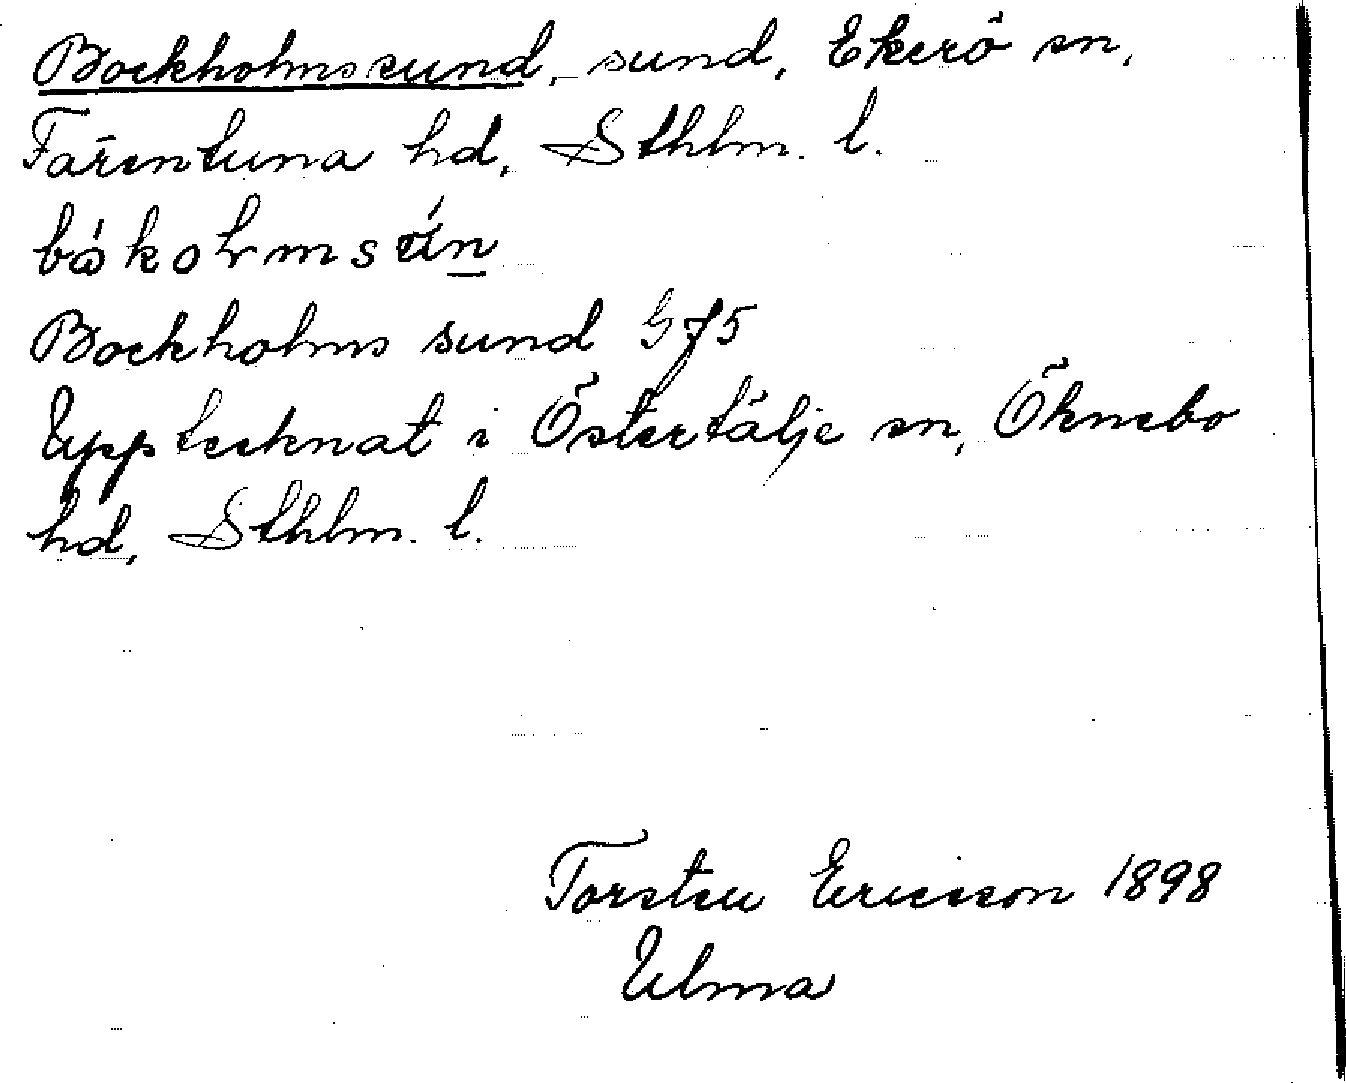 Bockholmssund, sund, Ekerö sn,
Färentuna hd, Sthlm. l.
Bockholms sund G 75
Upptecknat i Östertälje sn, Öknebo
hd, Sthlm. l.
Torsten Ericsson 1898
Ulma